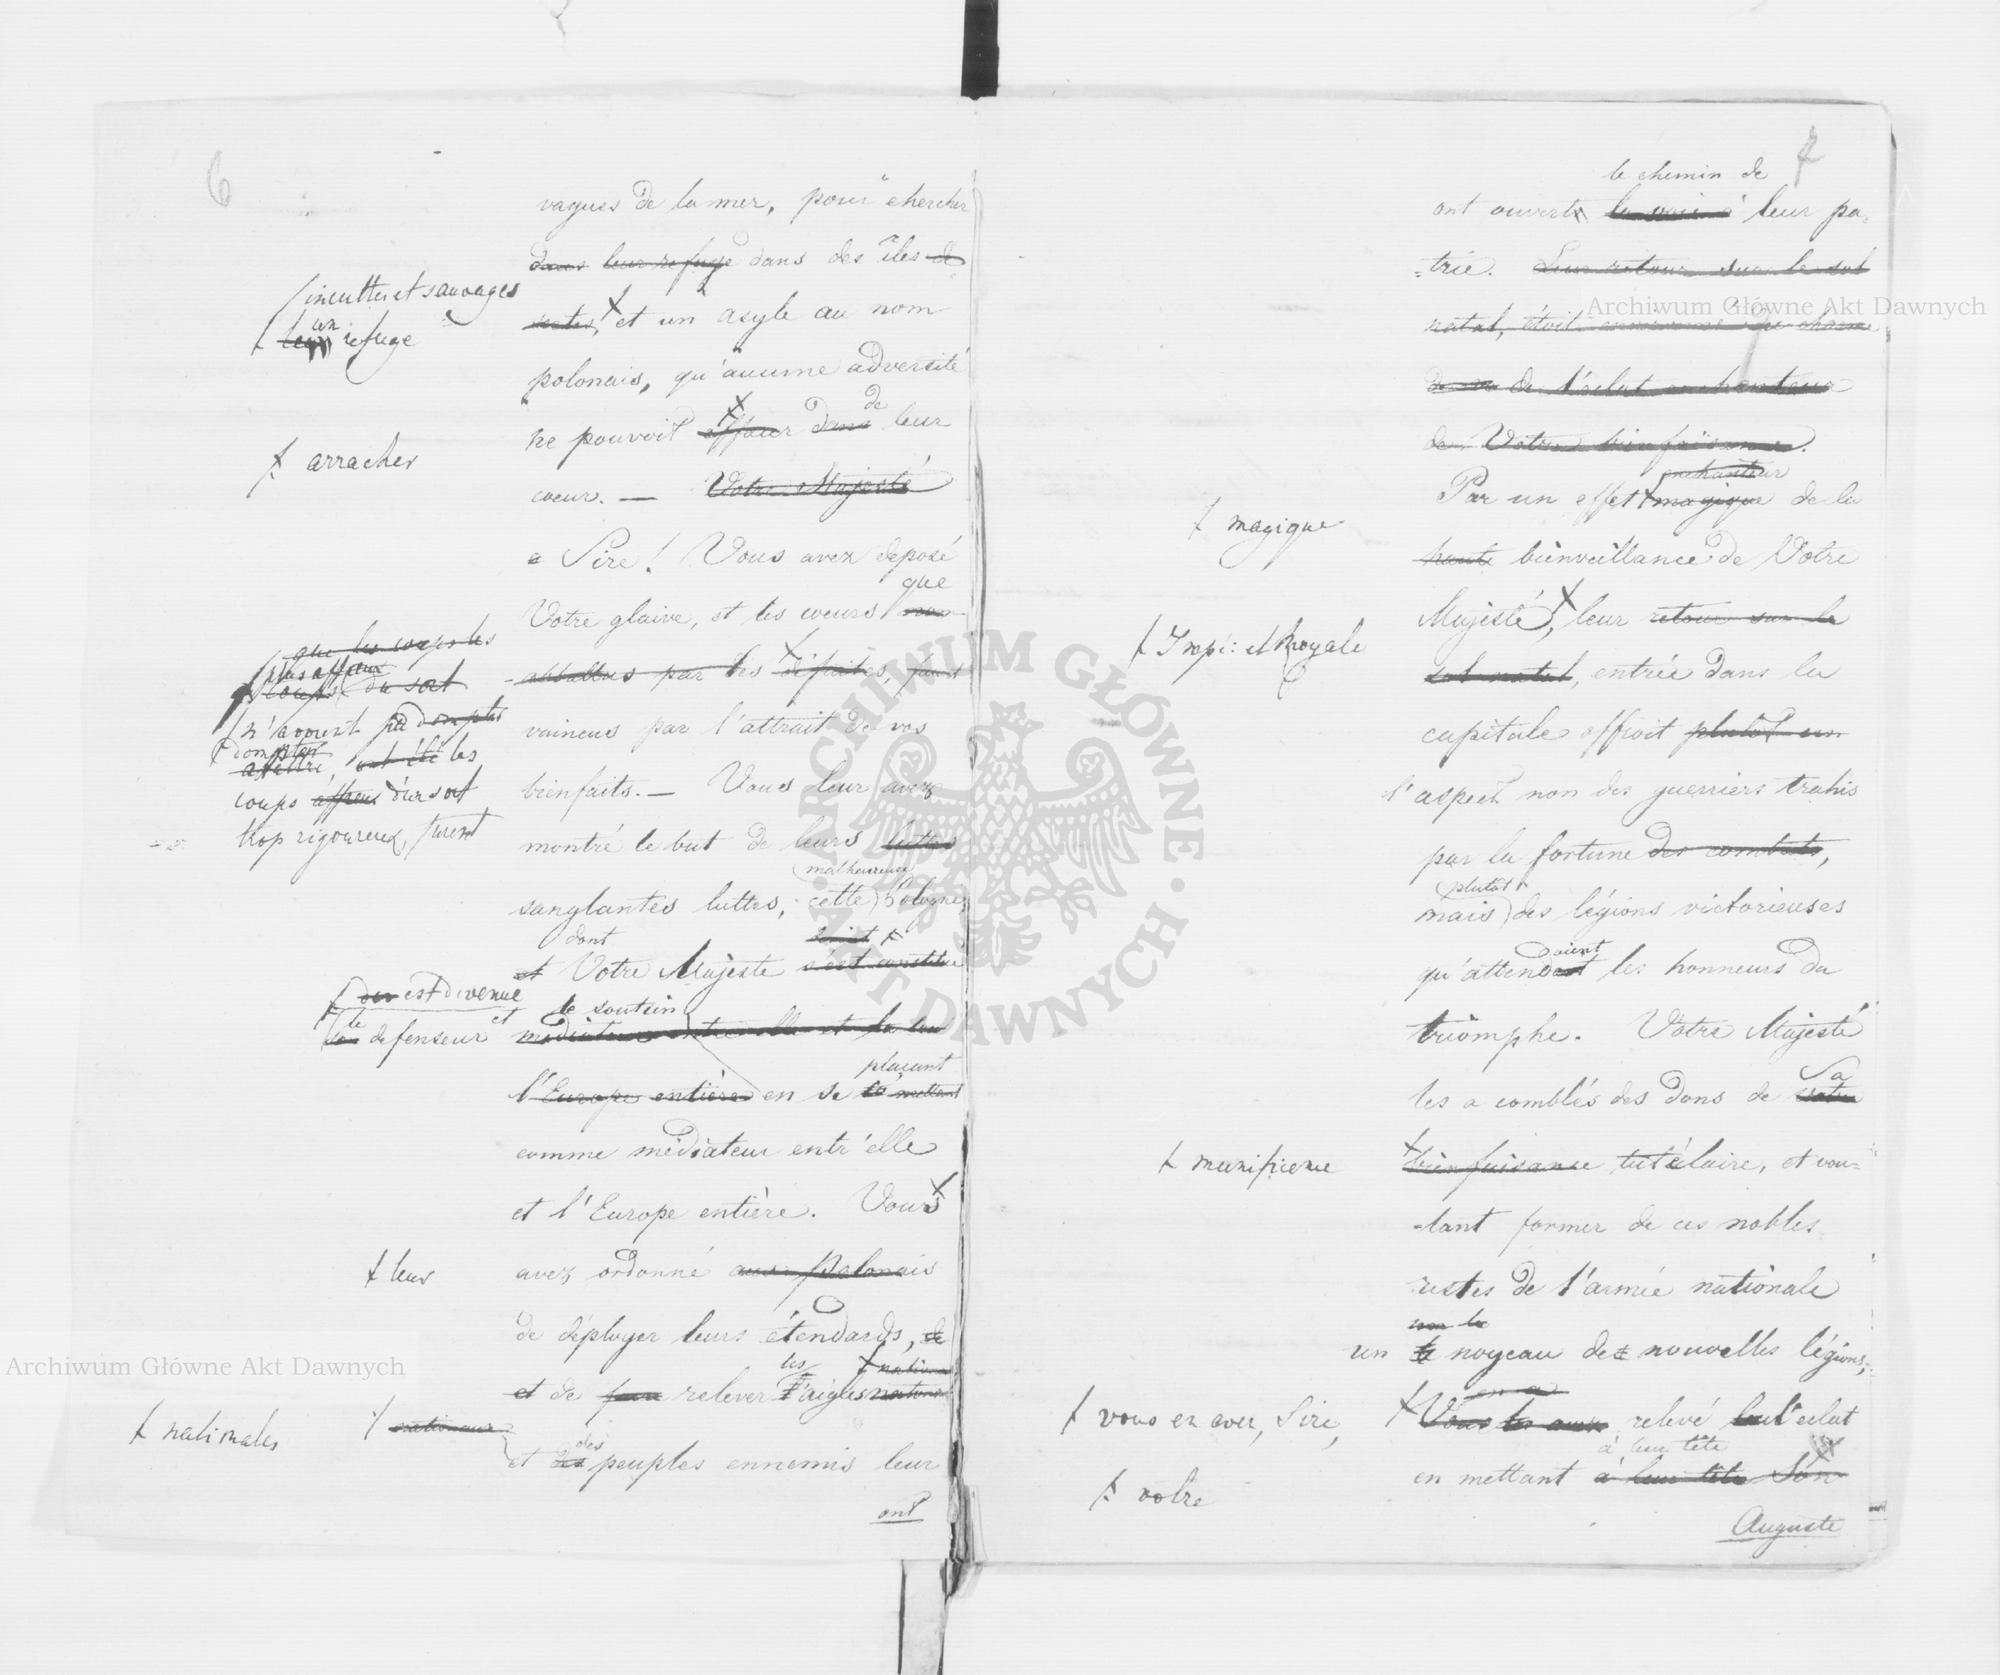 6
vagues de la mer, pour chercher
dans leur refuge dans des îles de
sertes, et un asyle au nom
polonais, qu'aucune adversité
de
ne pouvoit effacer dans leur
coeur. — Votre Majesté
a Sire! Vous avez deposé
que
Votre glaive, et les coeurs non
abbattus par les défaites, furent
vaincus par l'attrait de vos
bienfaits. — Vous leur avez
montré le but de leurs luttes
malheureuse
sanglantes luttes, cette Pologne,
dont
et Votre Majeste s'est constitué
le soutien
médiateur entre elle et
plaçant
l'Europe entière en se mettant
comme médiateur entr'elle
et l'Europe entière. Vous
avez ordonné aux Polonais
de déployer leurs étendards, de
les nationa
et de faire relever l'aigles
des
et des peuples ennemis leur
ont
incultes et sauvages
leur un refuge
arracher
que les coups les
plus affreux
coups du sort
n'avoient pû dompter
dompter
abattre, ont été les
coups affreux d'un sort
trop rigoureux, furent
est devenue
le defenseur et
leur
nationaux
nationales
7
le chemin de
ont ouvert la voie à leur pa-
trie. Leur retour sur le sol
natal, étoit
de l'éclat enchanteur
de Votre bienfaisance.
enchanteur
Par un effet magique de la
haute bienveillance de Votre
Majesté, leur retour sur le
sol natal, entrée dans la
capitale offroit plutôt un
l'aspect non des guerriers trahis
par la fortune des combats,
plutôt
mais des légions victorieuses
oient
qu'attendent les honneurs du
triomphe. Votre Majesté
Sa
les a comblés des dons de votre
bienfaisance tutélaire, et vou-
lant former de ces nobles
restes de l'armée nationale
un le noyeau de nouvelles légions,
en a
Vous les avez relevé l'eclat
à leur tête
en mettant à leur tête Son
Auguste
magique
Impe: et Royale
munificence
vous en avez, Sire,
votre
Archiwum Główne Akt Dawnych
Archiwum Główne Akt Dawnych
ARCHIWUM GŁÓWNE · AKT DAWNYCH ·